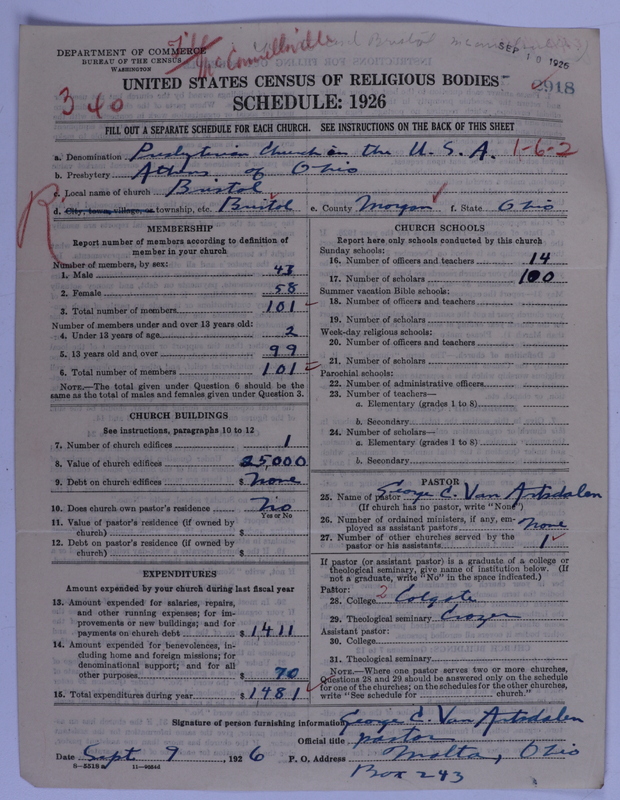 DEPARTMENT OF COMMERCE
BUREAU OF THE CENSUS
WASHINGTON
McConnellsville
SEP 10 1926
2918
UNITED STATES CENSUS OF RELIGIOUS BODIES
3 40
SCHEDULE: 1926
FILL OUT A SEPARATE SCHEDULE FOR EACH CHURCH. SEE INSTRUCTIONS ON THE BACK OF THIS SHEET
a. Denomination Presbyterian Church in the U. S. A. 1-6-2
b. Presbytery Athens of Ohio
c. Local name of church Bristol
d. City, town, village, or township, etc. Bristol e. County Morgan f. State Ohio
R
MEMBERSHIP
Report number of members according to definition of member in your church
Number of members, by sex:
1. Male 43
2. Female 58
3. Total number of members 101
Number of members under and over 13 years old:
4. Under 13 years of age 2
5. 13 years old and over 99
6. Total number of members 101
NOTE.—The total given under Question 6 should be the same as the total of males and females given under Question 3.
CHURCH BUILDINGS
See instructions, paragraphs 10 to 12
7. Number of church edifices 1
8. Value of church edifices 25,000
9. Debt on church edifices $ None
10. Does church own pastor's residence No
Yes or No
11. Value of pastor's residence (if owned by church) $
12. Debt on pastor's residence (if owned by church) $
EXPENDITURES
Amount expended by your church during last fiscal year
13. Amount expended for salaries, repairs, and other running expenses; for improvements or new buildings; and for payments on church debt $ 1411
14. Amount expended for benevolences, including home and foreign missions; for denominational support; and for all other purposes $ 70
15. Total expenditures during year $ 1481
CHURCH SCHOOLS
Report here only schools conducted by this church
Sunday schools:
16. Number of officers and teachers 14
17. Number of scholars 100
Summer vacation Bible schools:
18. Number of officers and teachers
19. Number of scholars
Week-day religious schools:
20. Number of officers and teachers
21. Number of scholars
Parochial schools:
22. Number of administrative officers
23. Number of teachers—
a. Elementary (grades 1 to 8)
b. Secondary
24. Number of scholars—
a. Elementary (grades 1 to 8)
b. Secondary
PASTOR
25. Name of pastor George E. Van Artsdalen
(If church has no pastor, write "None")
26. Number of ordained ministers, if any, employed as assistant pastors None
27. Number of other churches served by the pastor or his assistants 1
If pastor (or assistant pastor) is a graduate of a college or theological seminary, give name of institution below. (If not a graduate, write "No" in the space indicated.)
Pastor:
28. College 2 Colgate
29. Theological seminary Crozer
Assistant pastor:
30. College
31. Theological seminary
NOTE.—Where one pastor serves two or more churches, Questions 28 and 29 should be answered only on the schedule for one of the churches; on the schedules for the other churches, write "See schedule for church."
Signature of person furnishing information George E. Van Artsdalen
Official title pastor
Date Sept 9, 1926 P. O. Address Malta, Ohio
8—5518a 11—9054d
Box 243